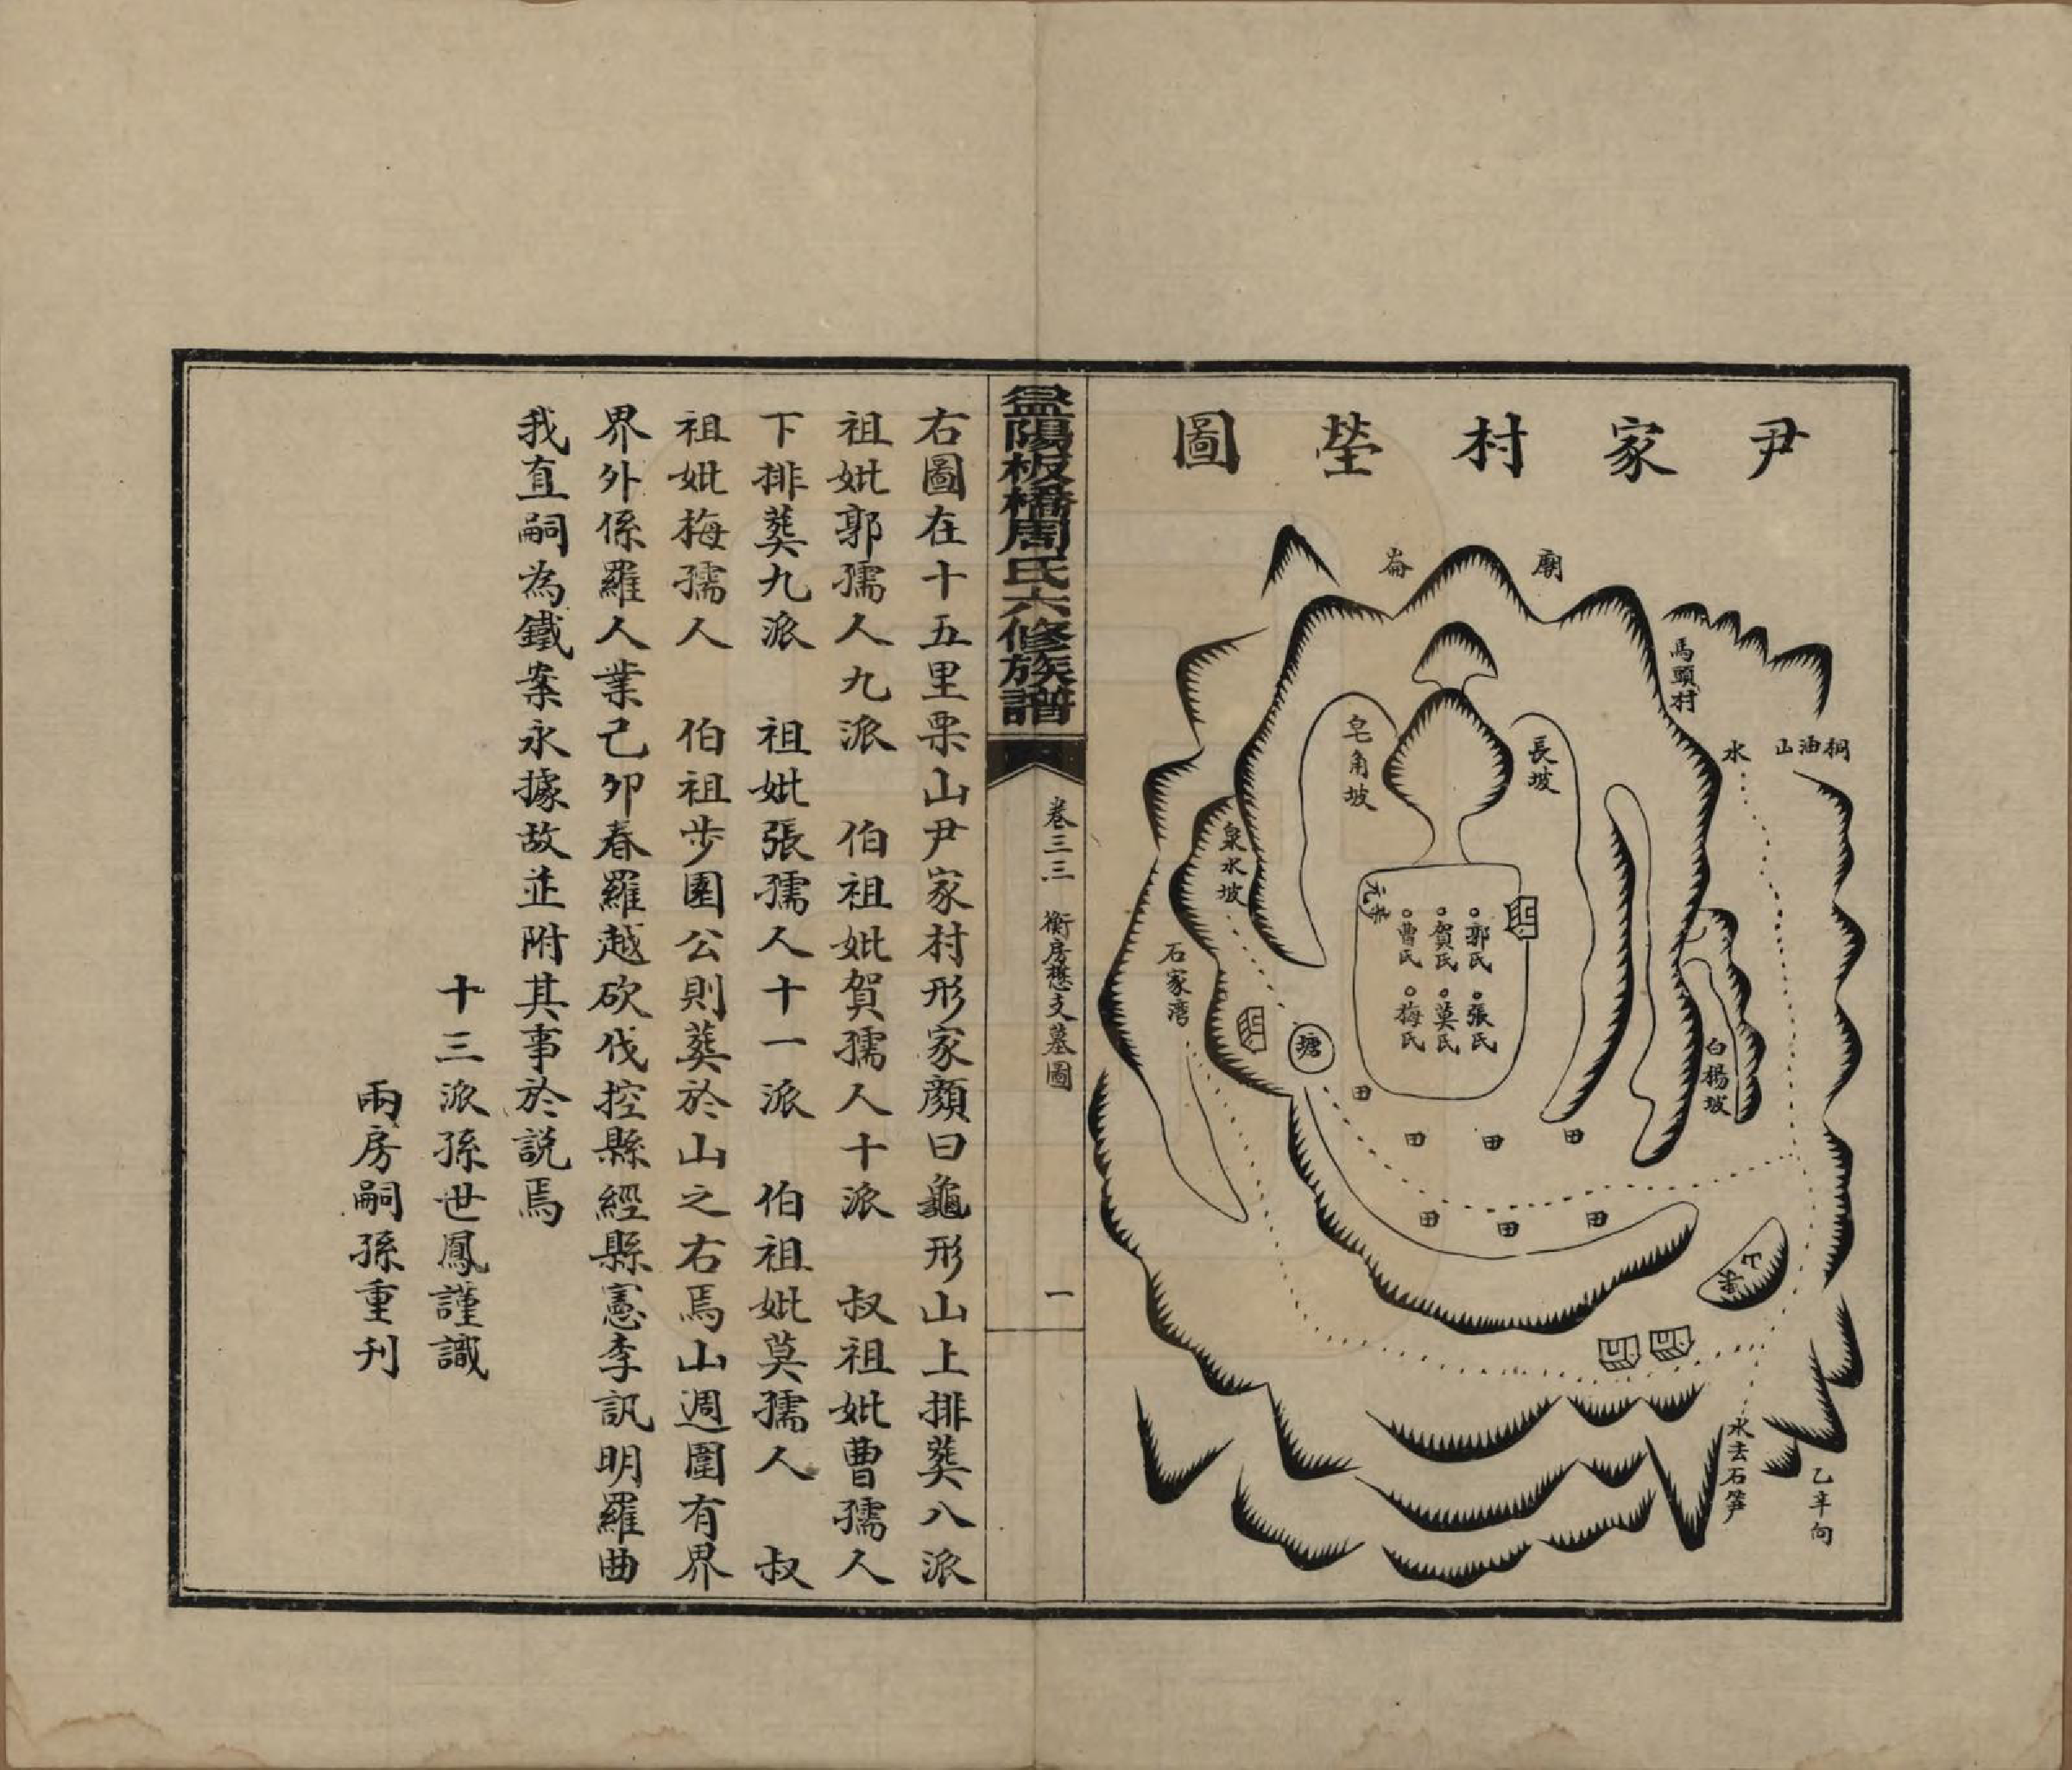 尹家村塋圖
廟崙
馬頭村
桐油山
水
長坡
皂角坡
泉水坡
石家湾
白楊坡
郭氏
賀氏
曹氏
張氏
莫氏
梅氏
塘
田
田
田
田
田
田
田
水去石笋
乙辛向
益陽板橋周氏六修族譜
卷三三 衡房懋支墓圖 一
右圖在十五里栗山尹家村形家顏曰龜形山上排葬八派
祖妣郭孺人九派 伯祖妣賀孺人十派 叔祖妣曹孺人
下排葬九派 祖妣張孺人十一派 伯祖妣莫孺人 叔
祖妣梅孺人 伯祖步圉公則葬於山之右焉山週圍有界
界外係羅人業己卯春羅越砍伐控縣經縣憲李訊明羅曲
我直嗣為鐵案永據故並附其事於説焉
十三派孫世鳳謹識
兩房嗣孫重刊